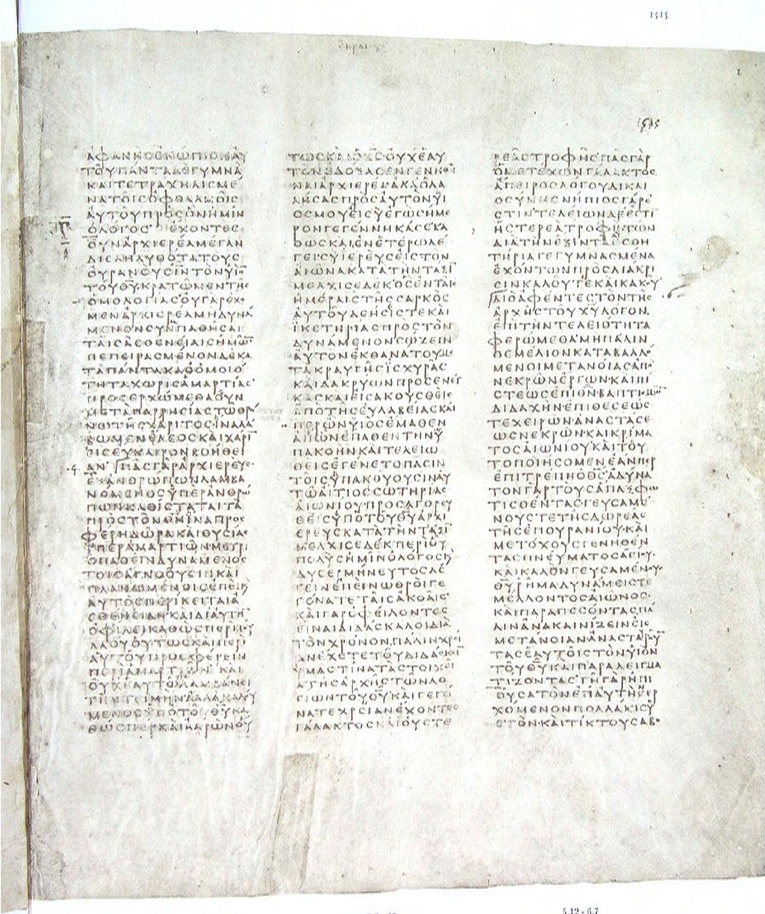 ΑΦΑΝΗϹΕΝΩΠΙΟΝΑΥ
ΤΟΥΠΑΝΤΑΔΕΓΥΜΝΑ
ΚΑΙΤΕΤΡΑΧΗΛΙϹΜΕ
ΝΑΤΟΙϹΟΦΘΑΛΜΟΙϹ
ΑΥΤΟΥΠΡΟϹΟΝΗΜΙΝ
ΟΛΟΓΟϹ ΕΧΟΝΤΕϹ
ΟΥΝΑΡΧΙΕΡΕΑΜΕΓΑΝ
ΔΙΕΛΗΛΥΘΟΤΑΤΟΥϹ
ΟΥΡΑΝΟΥϹΙΝΤΟΝΥΙΟ̅
ΤΟΥΘ̅Υ̅ΚΡΑΤΩΜΕΝΤΗϹ
ΟΜΟΛΟΓΙΑϹΟΥΓΑΡΕΧΟ
ΜΕΝΑΡΧΙΕΡΕΑΜΗΔΥΝΑ
ΜΕΝΟΝϹΥΝΠΑΘΗϹΑΙ
ΤΑΙϹΑϹΘΕΝΕΙΑΙϹΗΜΩ̅
ΠΕΠΕΙΡΑϹΜΕΝΟΝΔΕΚΑ
ΤΑΠΑΝΤΑΚΑΘΟΜΟΙΟ
ΤΗΤΑΧΩΡΙϹΑΜΑΡΤΙΑϹ
ΠΡΟϹΕΡΧΩΜΕΘΑΟΥΝ
ΜΕΤΑΠΑΡΡΗϹΙΑϹΤΩΘΡΟ
ΝΩΤΗϹΧΑΡΙΤΟϹΙΝΑΛΑ
ΒΩΜΕΝΕΛΕΟϹΚΑΙΧΑΡΙ̅
ΕΙϹΕΥΚΑΙΡΟΝΒΟΗΘΕΙ
ΑΝ ΠΑϹΓΑΡΑΡΧΙΕΡΕΥϹ
ΕΞΑΝΘΡΩΠΩΝΛΑΜΒΑ
ΝΟΜΕΝΟϹΥΠΕΡΑΝΘΡΩ
ΠΩΝΚΑΘΙϹΤΑΤΑΙΤΑ
ΠΡΟϹΤΟΝΘ̅Ν̅ΙΝΑΠΡΟϹ
ΦΕΡΗΔΩΡΑΚΑΙΘΥϹΙΑϹ
ΥΠΕΡΑΜΑΡΤΙΩΝΜΕΤΡΙ
ΟΠΑΘΕΙΝΔΥΝΑΜΕΝΟϹ
ΤΟΙϹΑΓΝΟΟΥϹΙΝΚΑΙ
ΠΛΑΝΩΜΕΝΟΙϹΕΠΕΙΚ
ΑΥΤΟϹΠΕΡΙΚΕΙΤΑΙΑ
ϹΘΕΝΕΙΑΝΚΑΙΔΙΑΥΤΗ̅
ΟΦΕΙΛΕΙΚΑΘΩϹΠΕΡΙΤΟΥ
ΛΑΟΥΟΥΤΩϹΚΑΙΠΕΡΙ
ΑΥΤΟΥΠΡΟϹΦΕΡΕΙΝ
ΠΕΡΙΑΜΑΡΤΙΩΝΚΑΙ
ΟΥΧΕΑΥΤΩΛΑΜΒΑΝΕΙ
ΤΙϹΤΗΝΤΕΙΜΗΝΑΛΛΑΚΑΛΟΥ
ΜΕΝΟϹΥΠΟΤΟΥΘ̅Υ̅ΚΑ
ΘΩϹΠΕΡΚΑΙΑΑΡΩΝΟΥ
ΤΩϹΚΑΙΟΧ̅Ϲ̅ΟΥΧΕΑΥ
ΤΟΝΕΔΟΞΑϹΕΝΓΕΝΗΘΗ
ΝΑΙΑΡΧΙΕΡΕΑΑΛΛΟΛΑ
ΛΗϹΑϹΠΡΟϹΑΥΤΟΝΥΙ
ΟϹΜΟΥΕΙϹΥΕΓΩϹΗΜΕ
ΡΟΝΓΕΓΕΝΝΗΚΑϹΕΚΑ
ΘΩϹΚΑΙΕΝΕΤΕΡΩΛΕ
ΓΕΙϹΥΙΕΡΕΥϹΕΙϹΤΟΝ
ΑΙΩΝΑΚΑΤΑΤΗΝΤΑΞΙ̅
ΜΕΛΧΙϹΕΔΕΚΟϹΕΝΤΑΙϹ
ΗΜΕΡΑΙϹΤΗϹϹΑΡΚΟϹ
ΑΥΤΟΥΔΕΗϹΙϹΤΕΚΑΙ
ΙΚΕΤΗΡΙΑϹΠΡΟϹΤΟΝ
ΔΥΝΑΜΕΝΟΝϹΩΖΕΙΝ
ΑΥΤΟΝΕΚΘΑΝΑΤΟΥΜΕ
ΤΑΚΡΑΥΓΗϹΙϹΧΥΡΑϹ
ΚΑΙΔΑΚΡΥΩΝΠΡΟϹΕΝΕΓ
ΚΑϹΚΑΙΕΙϹΑΚΟΥϹΘΕΙϹ
ΑΠΟΤΗϹΕΥΛΑΒΕΙΑϹΚΑΙ
ΠΕΡΩΝΥΙΟϹΕΜΑΘΕΝ
ΑΦΩΝΕΠΑΘΕΝΤΗΝΥ
ΠΑΚΟΗΝΚΑΙΤΕΛΕΙΩ
ΘΕΙϹΕΓΕΝΕΤΟΠΑϹΙΝ
ΤΟΙϹΥΠΑΚΟΥΟΥϹΙΝΑΥ
ΤΩΑΙΤΙΟϹϹΩΤΗΡΙΑϹ
ΑΙΩΝΙΟΥΠΡΟϹΑΓΟΡΕΥ
ΘΕΙϹΥΠΟΤΟΥΘ̅Υ̅ΑΡΧΙ
ΕΡΕΥϹΚΑΤΑΤΗΝΤΑΞΙ̅
ΜΕΛΧΙϹΕΔΕΚΠΕΡΙΟΥ
ΠΟΛΥϹΗΜΙΝΟΛΟΓΟϹΚ
ΔΥϹΕΡΜΗΝΕΥΤΟϹΛΕ
ΓΕΙΝΕΠΕΙΝΩΘΡΟΙΓΕ
ΓΟΝΑΤΕΤΑΙϹΑΚΟΑΙϹ
ΚΑΙΓΑΡΟΦΕΙΛΟΝΤΕϹ
ΕΙΝΑΙΔΙΔΑϹΚΑΛΟΙΔΙΑ
ΤΟΝΧΡΟΝΟΝΠΑΛΙΝΧΡΕΙ
ΑΝΕΧΕΤΕΤΟΥΔΙΔΑϹΚΕΙ̅
ΥΜΑϹΤΙΝΑΤΑϹΤΟΙΧΕΙ
ΑΤΗϹΑΡΧΗϹΤΩΝΛΟ
ΓΙΩΝΤΟΥΘ̅Υ̅ΚΑΙΓΕΓΟ
ΝΑΤΕΧΡΕΙΑΝΕΧΟΝΤΕϹ
ΓΑΛΑΚΤΟϹΚΑΙΟΥϹΤΕ
ΡΕΑϹΤΡΟΦΗϹΠΑϹΓΑΡ
ΟΜΕΤΕΧΩΝΓΑΛΑΚΤΟϹ
ΑΠΕΙΡΟϹΛΟΓΟΥΔΙΚΑΙ
ΟϹΥΝΗϹΝΗΠΙΟϹΓΑΡΕ
ϹΤΙΝΤΕΛΕΙΩΝΔΕΕϹΤΙ
ΗϹΤΕΡΕΑΤΡΟΦΗΤΩΝ
ΔΙΑΤΗΝΕΞΙΝΤΑΕϹΘΗ
ΤΗΡΙΑΓΕΓΥΜΝΑϹΜΕΝΑ
ΕΧΟΝΤΩΝΠΡΟϹΔΙΑΚΡΙ
ϹΙΝΚΑΛΟΥΤΕΚΑΙΚΑΚΟΥ
ΔΙΟΑΦΕΝΤΕϹΤΟΝΤΗϹ
ΑΡΧΗϹΤΟΥΧ̅Υ̅ΛΟΓΟΝ
ΕΠΙΤΗΝΤΕΛΕΙΟΤΗΤΑ
ΦΕΡΩΜΕΘΑΜΗΠΑΛΙΝ
ΘΕΜΕΛΙΟΝΚΑΤΑΒΑΛΛΟ
ΜΕΝΟΙΜΕΤΑΝΟΙΑϹΑΠΟ
ΝΕΚΡΩΝΕΡΓΩΝΚΑΙΠΙ
ϹΤΕΩϹΕΠΙΘ̅Ν̅ΒΑΠΤΙϹΜΩ̅
ΔΙΔΑΧΗΝΕΠΙΘΕϹΕΩϹ
ΤΕΧΕΙΡΩΝΑΝΑϹΤΑϹΕ
ΩϹΝΕΚΡΩΝΚΑΙΚΡΙΜΑ
ΤΟϹΑΙΩΝΙΟΥΚΑΙΤΟΥ
ΤΟΠΟΙΗϹΟΜΕΝΕΑΝΠΕΡ
ΕΠΙΤΡΕΠΗΟΘ̅Ϲ̅ΑΔΥΝΑ
ΤΟΝΓΑΡΤΟΥϹΑΠΑΞΦΩ
ΤΙϹΘΕΝΤΑϹΓΕΥϹΑΜΕ
ΝΟΥϹΤΕΤΗϹΔΩΡΕΑϹ
ΤΗϹΕΠΟΥΡΑΝΙΟΥΚΑΙ
ΜΕΤΟΧΟΥϹΓΕΝΗΘΕΝ
ΤΑϹΠΝΕΥΜΑΤΟϹΑΓΙΟΥ
ΚΑΙΚΑΛΟΝΓΕΥϹΑΜΕΝΟΥϹ
Θ̅Υ̅ΡΗΜΑΔΥΝΑΜΕΙϹΤΕ
ΜΕΛΛΟΝΤΟϹΑΙΩΝΟϹ
ΚΑΙΠΑΡΑΠΕϹΟΝΤΑϹΠΑ
ΛΙΝΑΝΑΚΑΙΝΙΖΕΙΝΕΙϹ
ΜΕΤΑΝΟΙΑΝΑΝΑϹΤΑΥΡΟΥ̅
ΤΑϹΕΑΥΤΟΙϹΤΟΝΥΙΟΝ
ΤΟΥΘ̅Υ̅ΚΑΙΠΑΡΑΔΕΙΓΜΑ
ΤΙΖΟΝΤΑϹΓΗΓΑΡΗΠΙ
ΟΥϹΑΤΟΝΕΠΑΥΤΗϹΕΡ
ΧΟΜΕΝΟΝΠΟΛΛΑΚΙϹΥ
ΕΤΟΝΚΑΙΤΙΚΤΟΥϹΑΒΟ
1515
1515
5,12 - 6,7